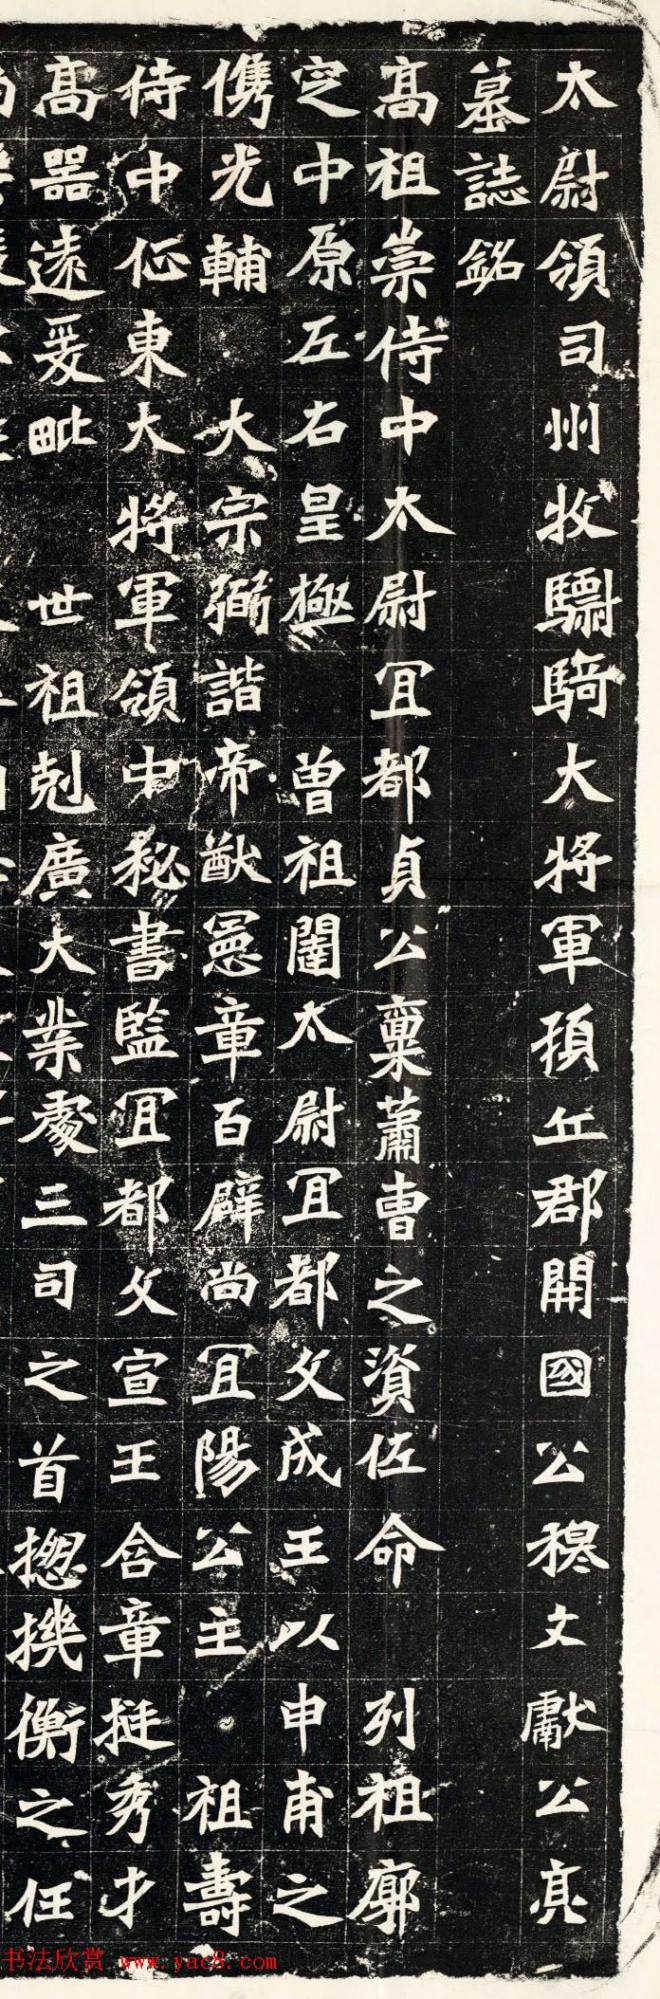 太尉領司州牧驃騎大將軍頓丘郡開國公穆文獻公亮
墓誌銘
高祖崇侍中太尉冝都貞公稟蕭曹之資佐命　列祖廓
定中原左右皇極　曾祖闥太尉冝都文成王以申甫之
儁光輔　大宗弼諧帝猷憲章百辟尚冝陽公主　祖壽
侍中征東大將軍領中秘書監冝都文宣王含章挺秀才
高器遠爰毗　世祖剋廣大業處三司之首揔機衡之任
书法欣赏 www.yac8.com